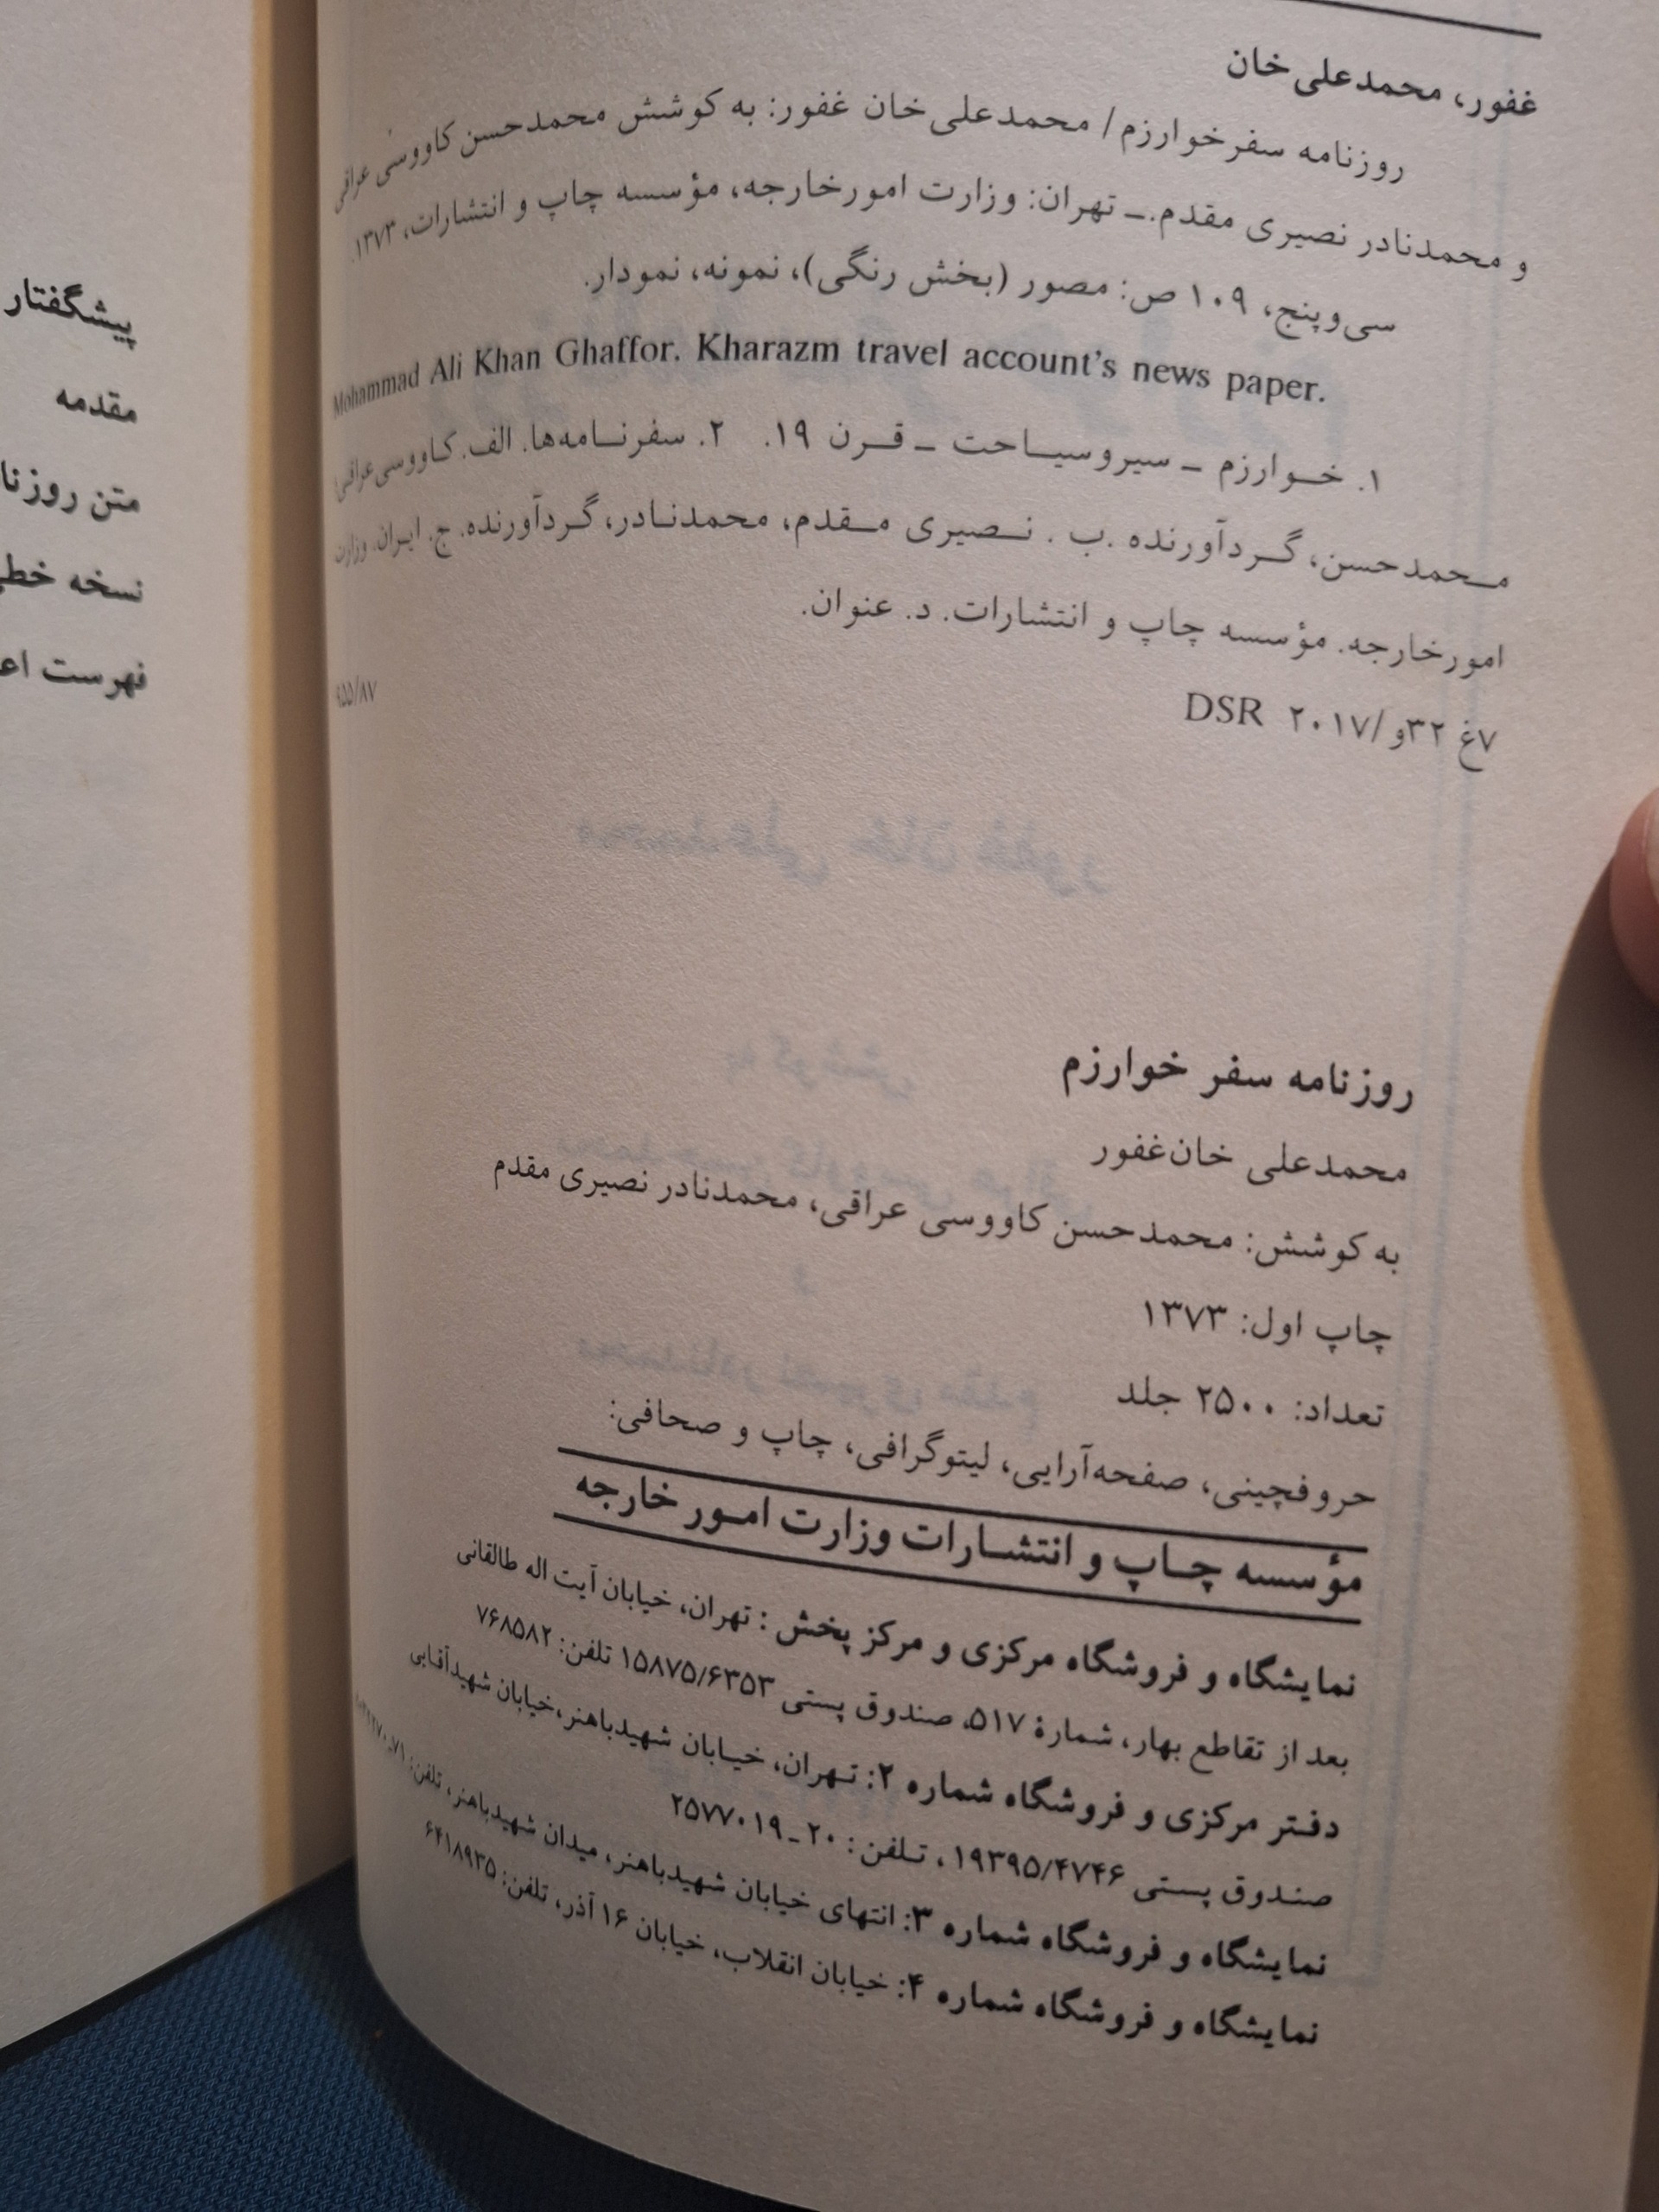 غفور، محمدعلی‌خان
روزنامه سفرخوارزم/ محمدعلی‌خان غفور: به کوشش محمدحسن کاووسی عراقی
و محمدنادر نصیری مقدم.ـ تهران: وزارت امورخارجه، مؤسسه چاپ و انتشارات، ۱۳۷۳.
سی‌وپنج، ۱۰۹ ص: مصور (بخش رنگی)، نمونه، نمودار.
Mohammad Ali Khan Ghaffor. Kharazm travel account's news paper.
۱. خوارزم ـ سیروسیاحت ـ قرن ۱۹. ۲. سفرنامه‌ها. الف. کاووسی‌عراقی،
محمدحسن، گردآورنده .ب . نصیری مقدم، محمدنادر، گردآورنده. ج. ایران. وزارت
امورخارجه. مؤسسه چاپ و انتشارات. د. عنوان.
۷غ ۳۲و /۲۰۱۷ DSR
۹۵۵/۸۷
روزنامه سفر خوارزم
محمدعلی خان‌غفور
به کوشش: محمدحسن کاووسی عراقی، محمدنادر نصیری مقدم
چاپ اول: ۱۳۷۳
تعداد: ۲۵۰۰ جلد
حروفچینی، صفحه‌آرایی، لیتوگرافی، چاپ و صحافی:
مؤسسه چاپ و انتشارات وزارت امور خارجه
نمایشگاه و فروشگاه مرکزی و مرکز پخش : تهران، خیابان آیت اله طالقانی
بعد از تقاطع بهار، شمارهٔ ۵۱۷، صندوق پستی ۱۵۸۷۵/۶۳۵۳ تلفن: ۷۶۸۵۸۲
دفتر مرکزی و فروشگاه شماره ۲: تهران، خیابان شهیدباهنر،خیابان شهیدآقایی
صندوق پستی ۱۹۳۹۵/۴۷۴۶ ، تلفن: ۲۰ ـ ۲۵۷۷۰۱۹
نمایشگاه و فروشگاه شماره ۳: انتهای خیابان شهیدباهنر، میدان شهیدباهنر، تلفن:
نمایشگاه و فروشگاه شماره ۴: خیابان انقلاب، خیابان ۱۶ آذر، تلفن: ۶۴۱۸۹۳۵
پیشگفتار
مقدمه
متن
نسخه
فهرست